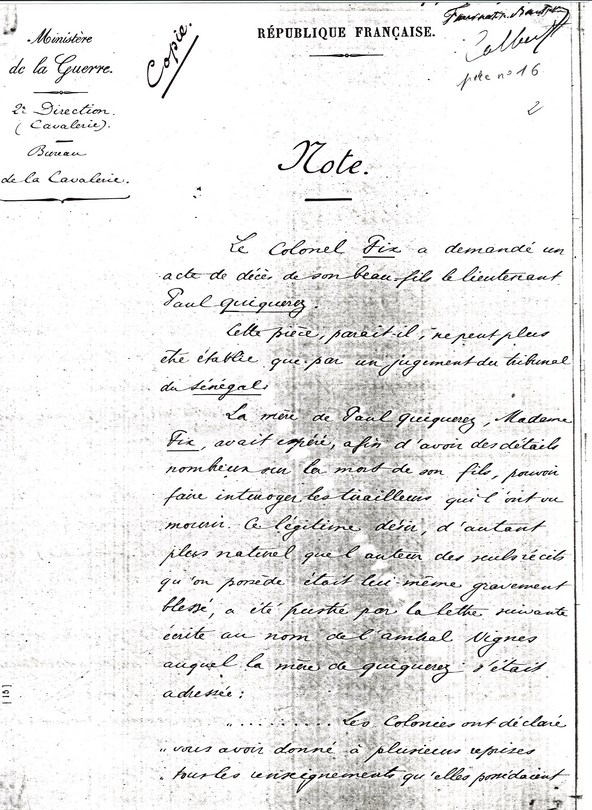 Ministère
de la Guerre.
2e Direction.
(Cavalerie).
Bureau
de la Cavalerie.
Copie.
RÉPUBLIQUE FRANÇAISE.
pièce no 16
2
Note.
Le Colonel Fix a demandé un
acte de décès de son beau-fils le lieutenant
Paul Quiquerez.
Cette pièce, paraît-il, ne peut plus
être établie que par un jugement du tribunal
du Sénégal.
La mère de Paul Quiquerez, Madame
Fix, avait espéré, afin d'avoir des détails
nombreux sur la mort de son fils, pouvoir
faire interroger les tirailleurs qui l'ont vu
mourir. Ce légitime désir, d'autant
plus naturel que l'auteur des seuls récits
qu'on possède était lui-même gravement
blessé, a été frustré par la lettre suivante
écrite au nom de l'amiral Vignes
auquel la mère de Quiquerez s'était
adressée:
„.......... Les Colonies ont déclaré
„ vous avoir donné à plusieurs reprises
„ tous les renseignements qu'elles possédaient
[15]